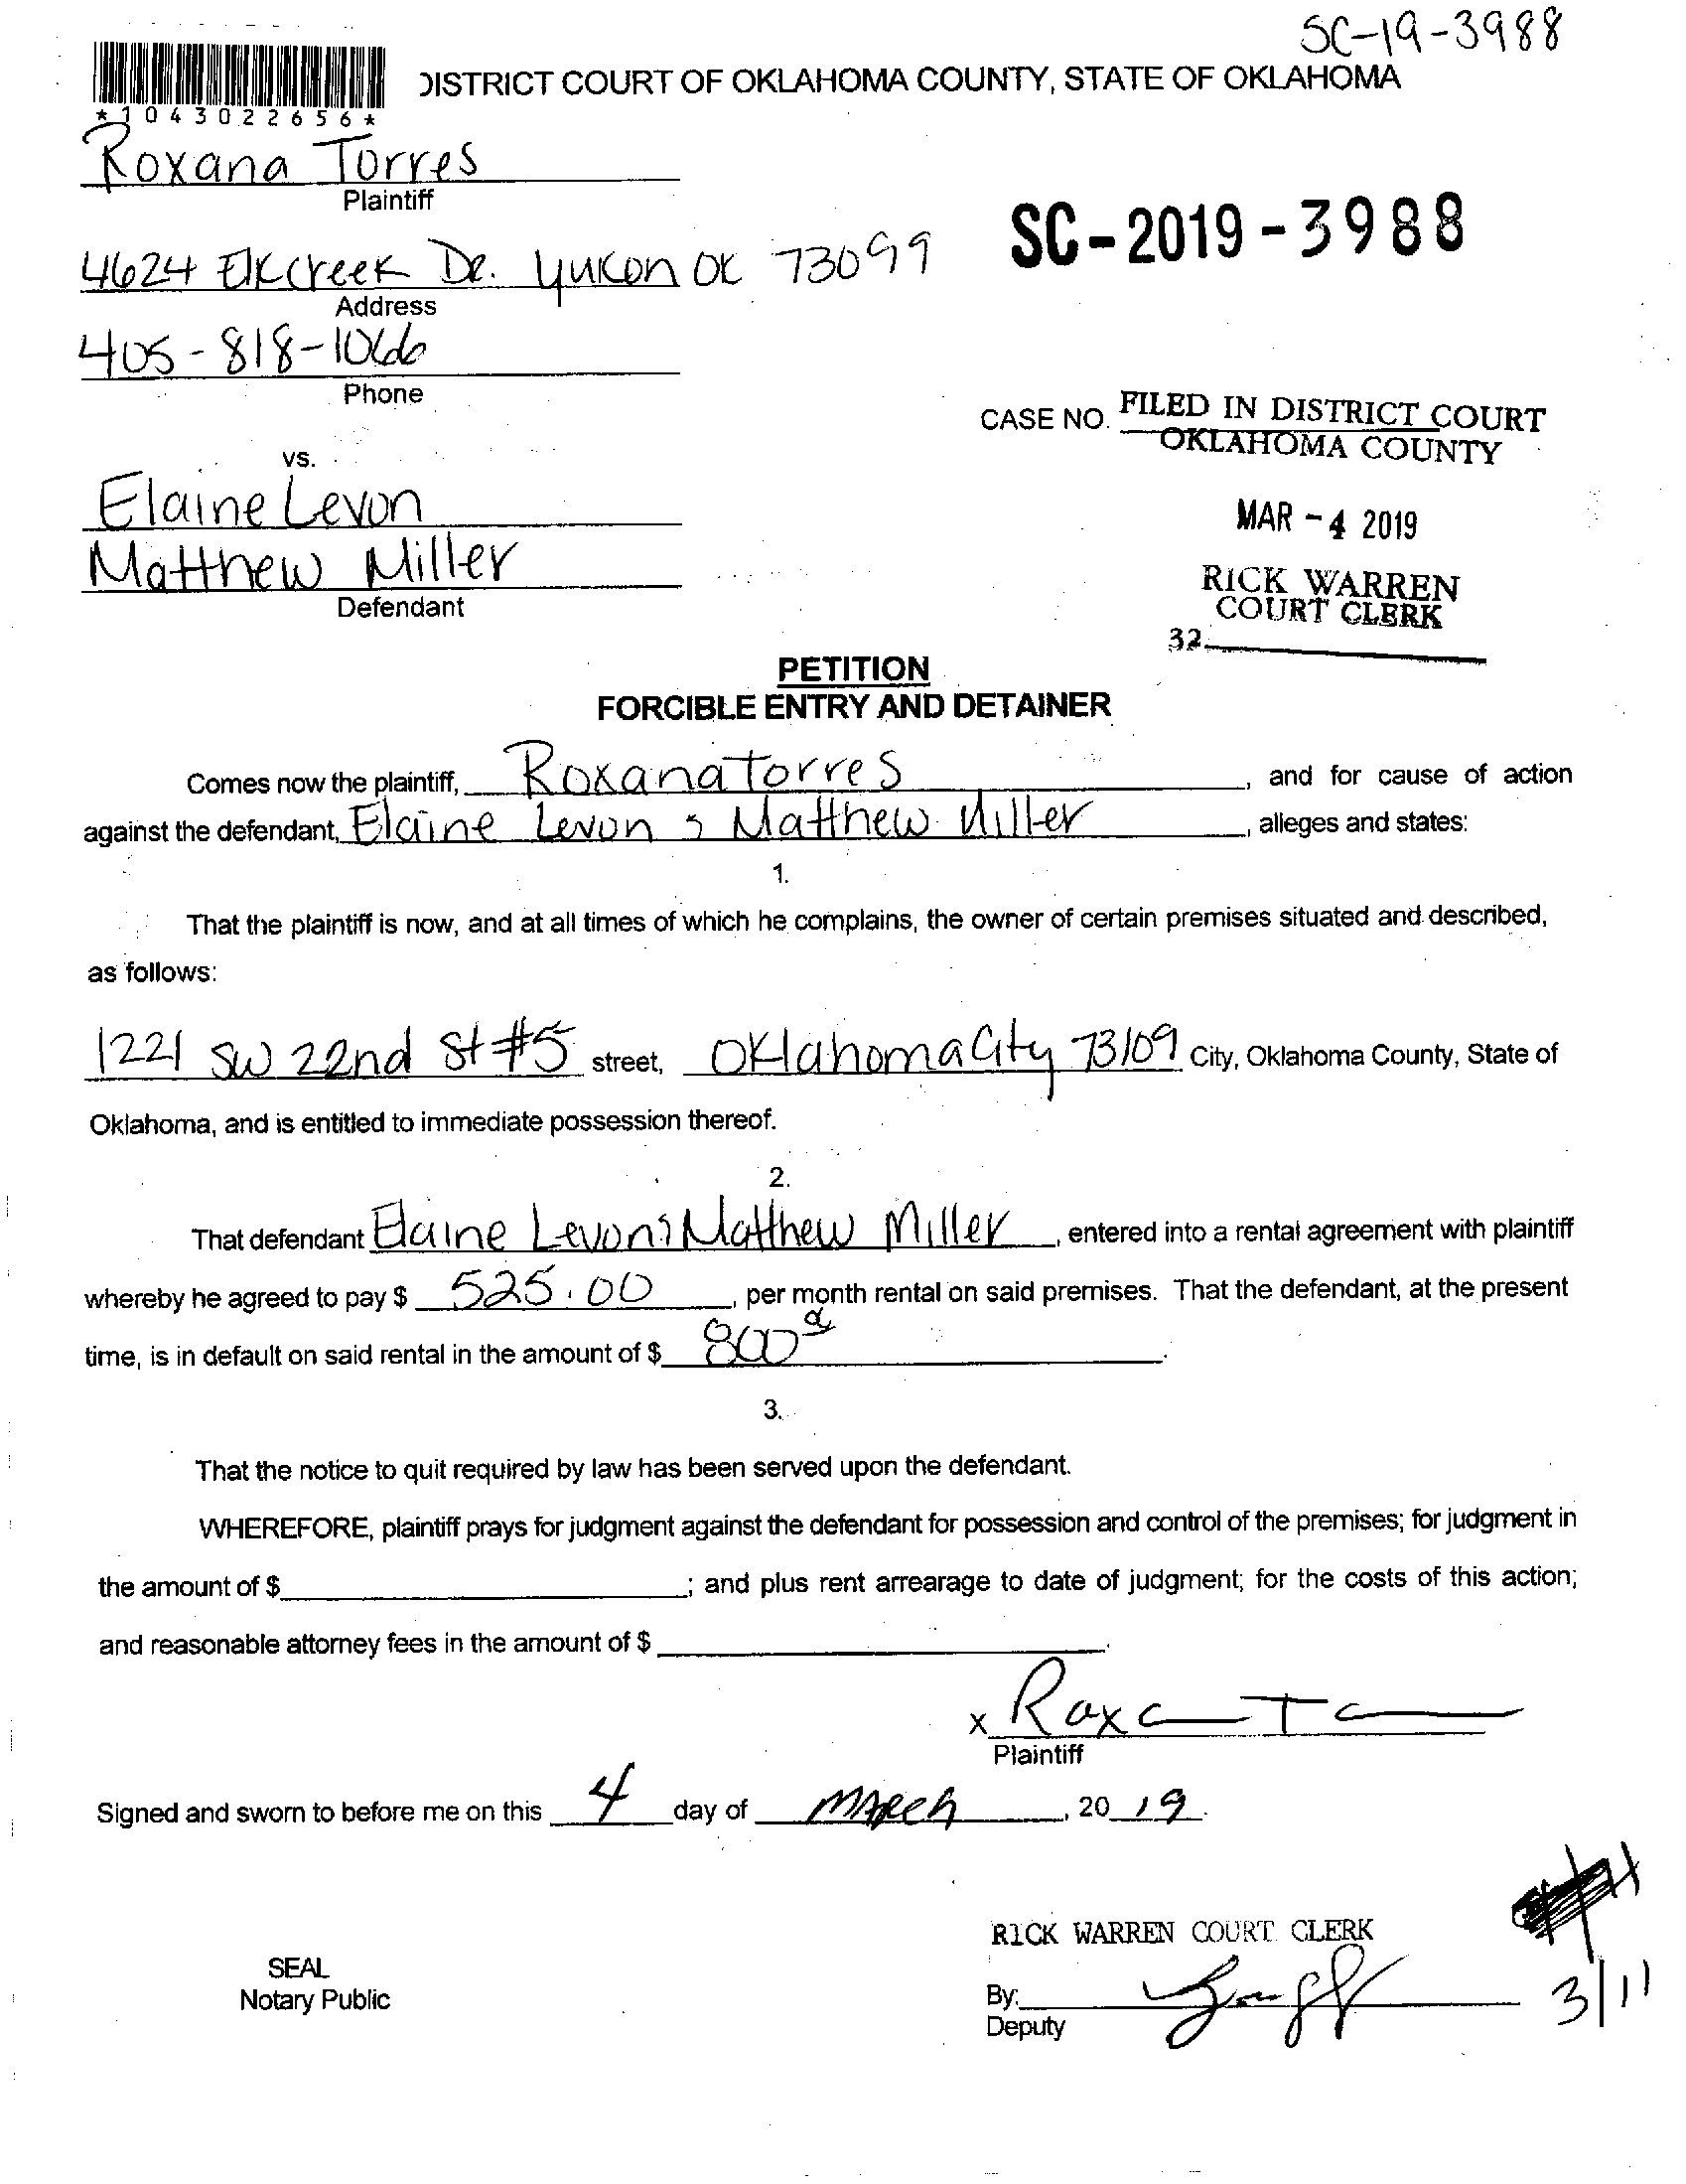 SC-19-3988
DISTRICT COURT OF OKLAHOMA COUNTY, STATE OF OKLAHOMA
*1043022656*
Roxana Torres
Plaintiff
SC-2019-3988
4624 Elk creek Dr. Yukon OK 73099
Address
405-818-1066
Phone
CASE NO. FILED IN DISTRICT COURT
OKLAHOMA COUNTY
vs.
Elaine Levon
MAR -4 2019
Matthew Miller
Defendant
RICK WARREN
COURT CLERK
32
PETITION
FORCIBLE ENTRY AND DETAINER
Comes now the plaintiff, Roxana Torres, and for cause of action
against the defendant, Elaine Levon & Matthew Miller, alleges and states:
1.
That the plaintiff is now, and at all times of which he complains, the owner of certain premises situated and described,
as follows:
1221 SW 22nd St #5 street, Oklahoma City 73109 City, Oklahoma County, State of
Oklahoma, and is entitled to immediate possession thereof.
2.
That defendant Elaine Levon & Matthew Miller, entered into a rental agreement with plaintiff
whereby he agreed to pay $ 525.00, per month rental on said premises. That the defendant, at the present
time, is in default on said rental in the amount of $ 800.
3.
That the notice to quit required by law has been served upon the defendant.
WHEREFORE, plaintiff prays for judgment against the defendant for possession and control of the premises; for judgment in
the amount of $ ; and plus rent arrearage to date of judgment; for the costs of this action;
and reasonable attorney fees in the amount of $
x
Plaintiff
Signed and sworn to before me on this 4 day of March, 20 19.
RICK WARREN COURT CLERK
SEAL
Notary Public
By:
Deputy
3/11